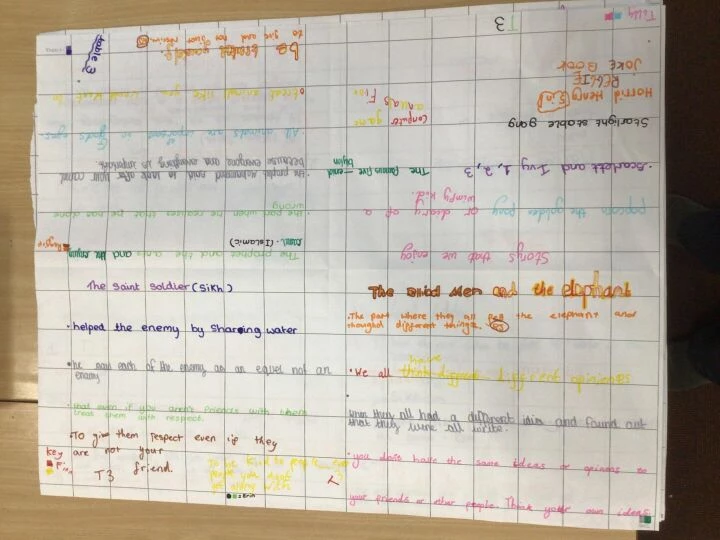 The saint soldier (Sikh)
• helped the enemy by sharing water
• he each of the enemy as an equel not an
enemy
• that even if you aren't friends with them
treat them with respect.
• To give them respect even if they
are not your
friend.
key
T3
to be kind to people
people you
get along with
= Erin
The Blind Men and the elephant
• The part where they all fell the elephant and
thoughd different things.
• We all have
think different different opinions
•
when they all had a different idia and found out
that they were all
• you dont have the same ideas or so
your friends or other people. Think your own ideas
Tilly
T3
Horrid Henry (5 in 1)
REGGIE
JOKE BOOK
Starlight stable gang
Computer game
annuals Flav
• Scarlett and Ivvy 1, 2, 3
The famous five
blyton
popcorn the golden pony or diary of a
wimpy kid.
Storys that we enjoy
table 3
to give and not just
o treat animal like you would want to
All animals are important in gods eyes
• the prophet Muhammed said to look after your
because everyone and everything is important
• the part when he realises that he has done
wrong
The prophet and the ants and the crying
camel. (Islamic)